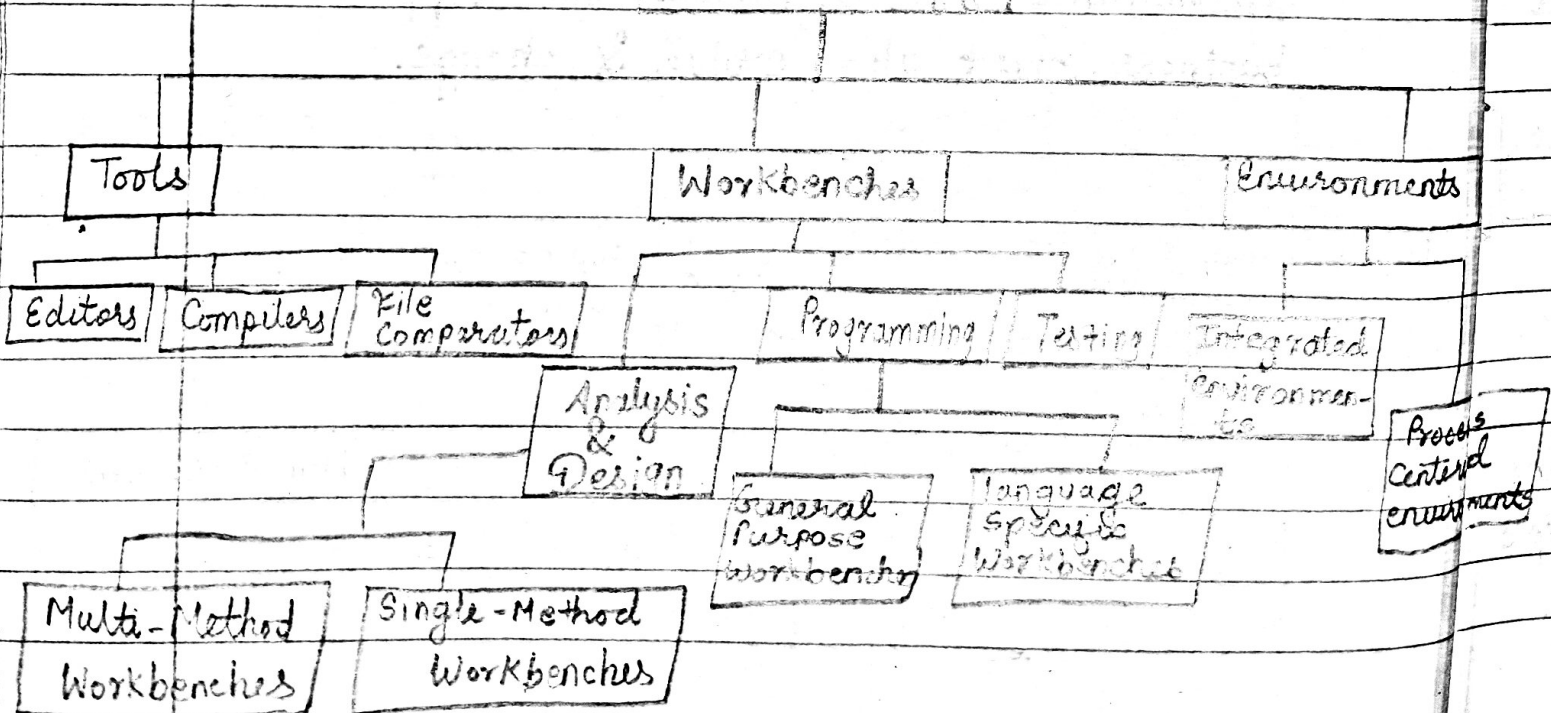 Tools
Workbenches
Environments
Editors
Compilers
File
Comparators
Programming
Testing
Integrated
environmen-
ts
Analysis
&
Design
Process
Centered
environments
General
Purpose
Workbenches
language
Specific
Workbenches
Multi-Method
Workbenches
Single-Method
Workbenches